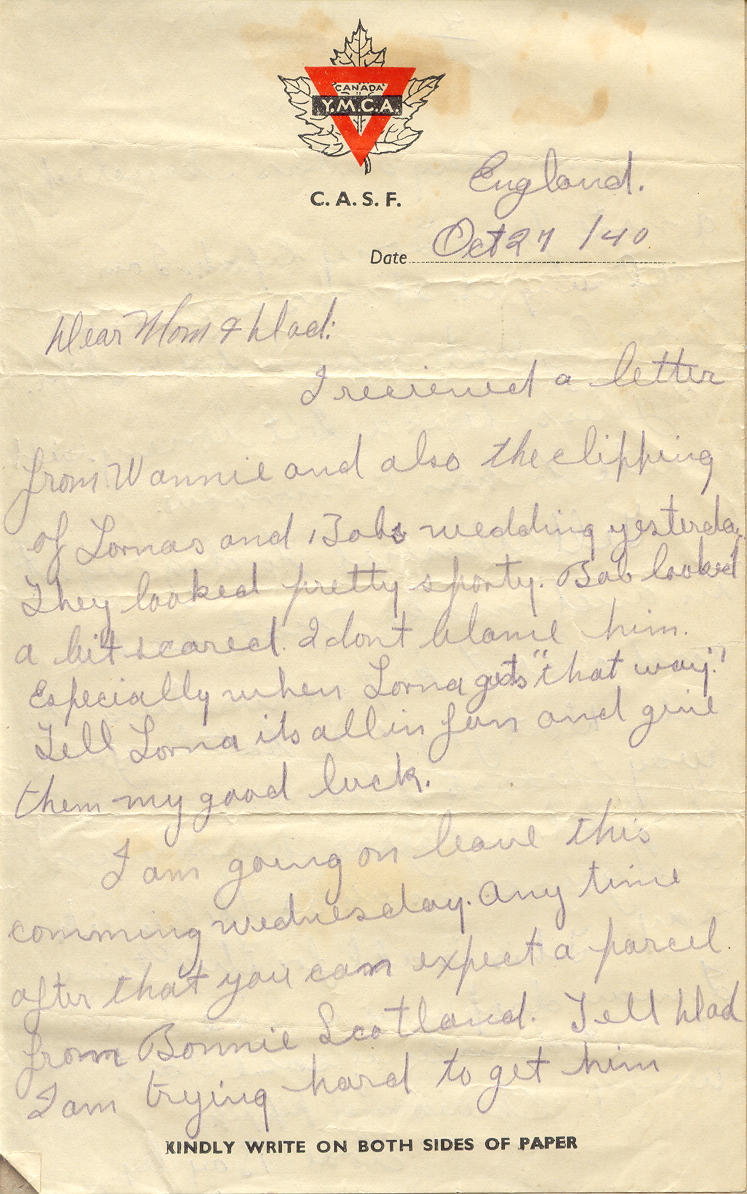 CANADA
Y.M.C.A.
C. A. S. F.
England.
Date Oct 27 /40
Dear Mom & Dad:
I recieved a letter
from Wannie and also the clipping
of Lornas and Bobs wedding yesterday.
They looked pretty sporty. Bob looked
a bit scared. I dont blame him.
Especially when Lorna gets "that way".
Tell Lorna its all in fun and give
them my good luck.
I am going on leave this
comming wednesday. Any time
after that you can expect a parcel.
from Bonnie Scotland. Tell Dad
I am trying hard to get him
KINDLY WRITE ON BOTH SIDES OF PAPER